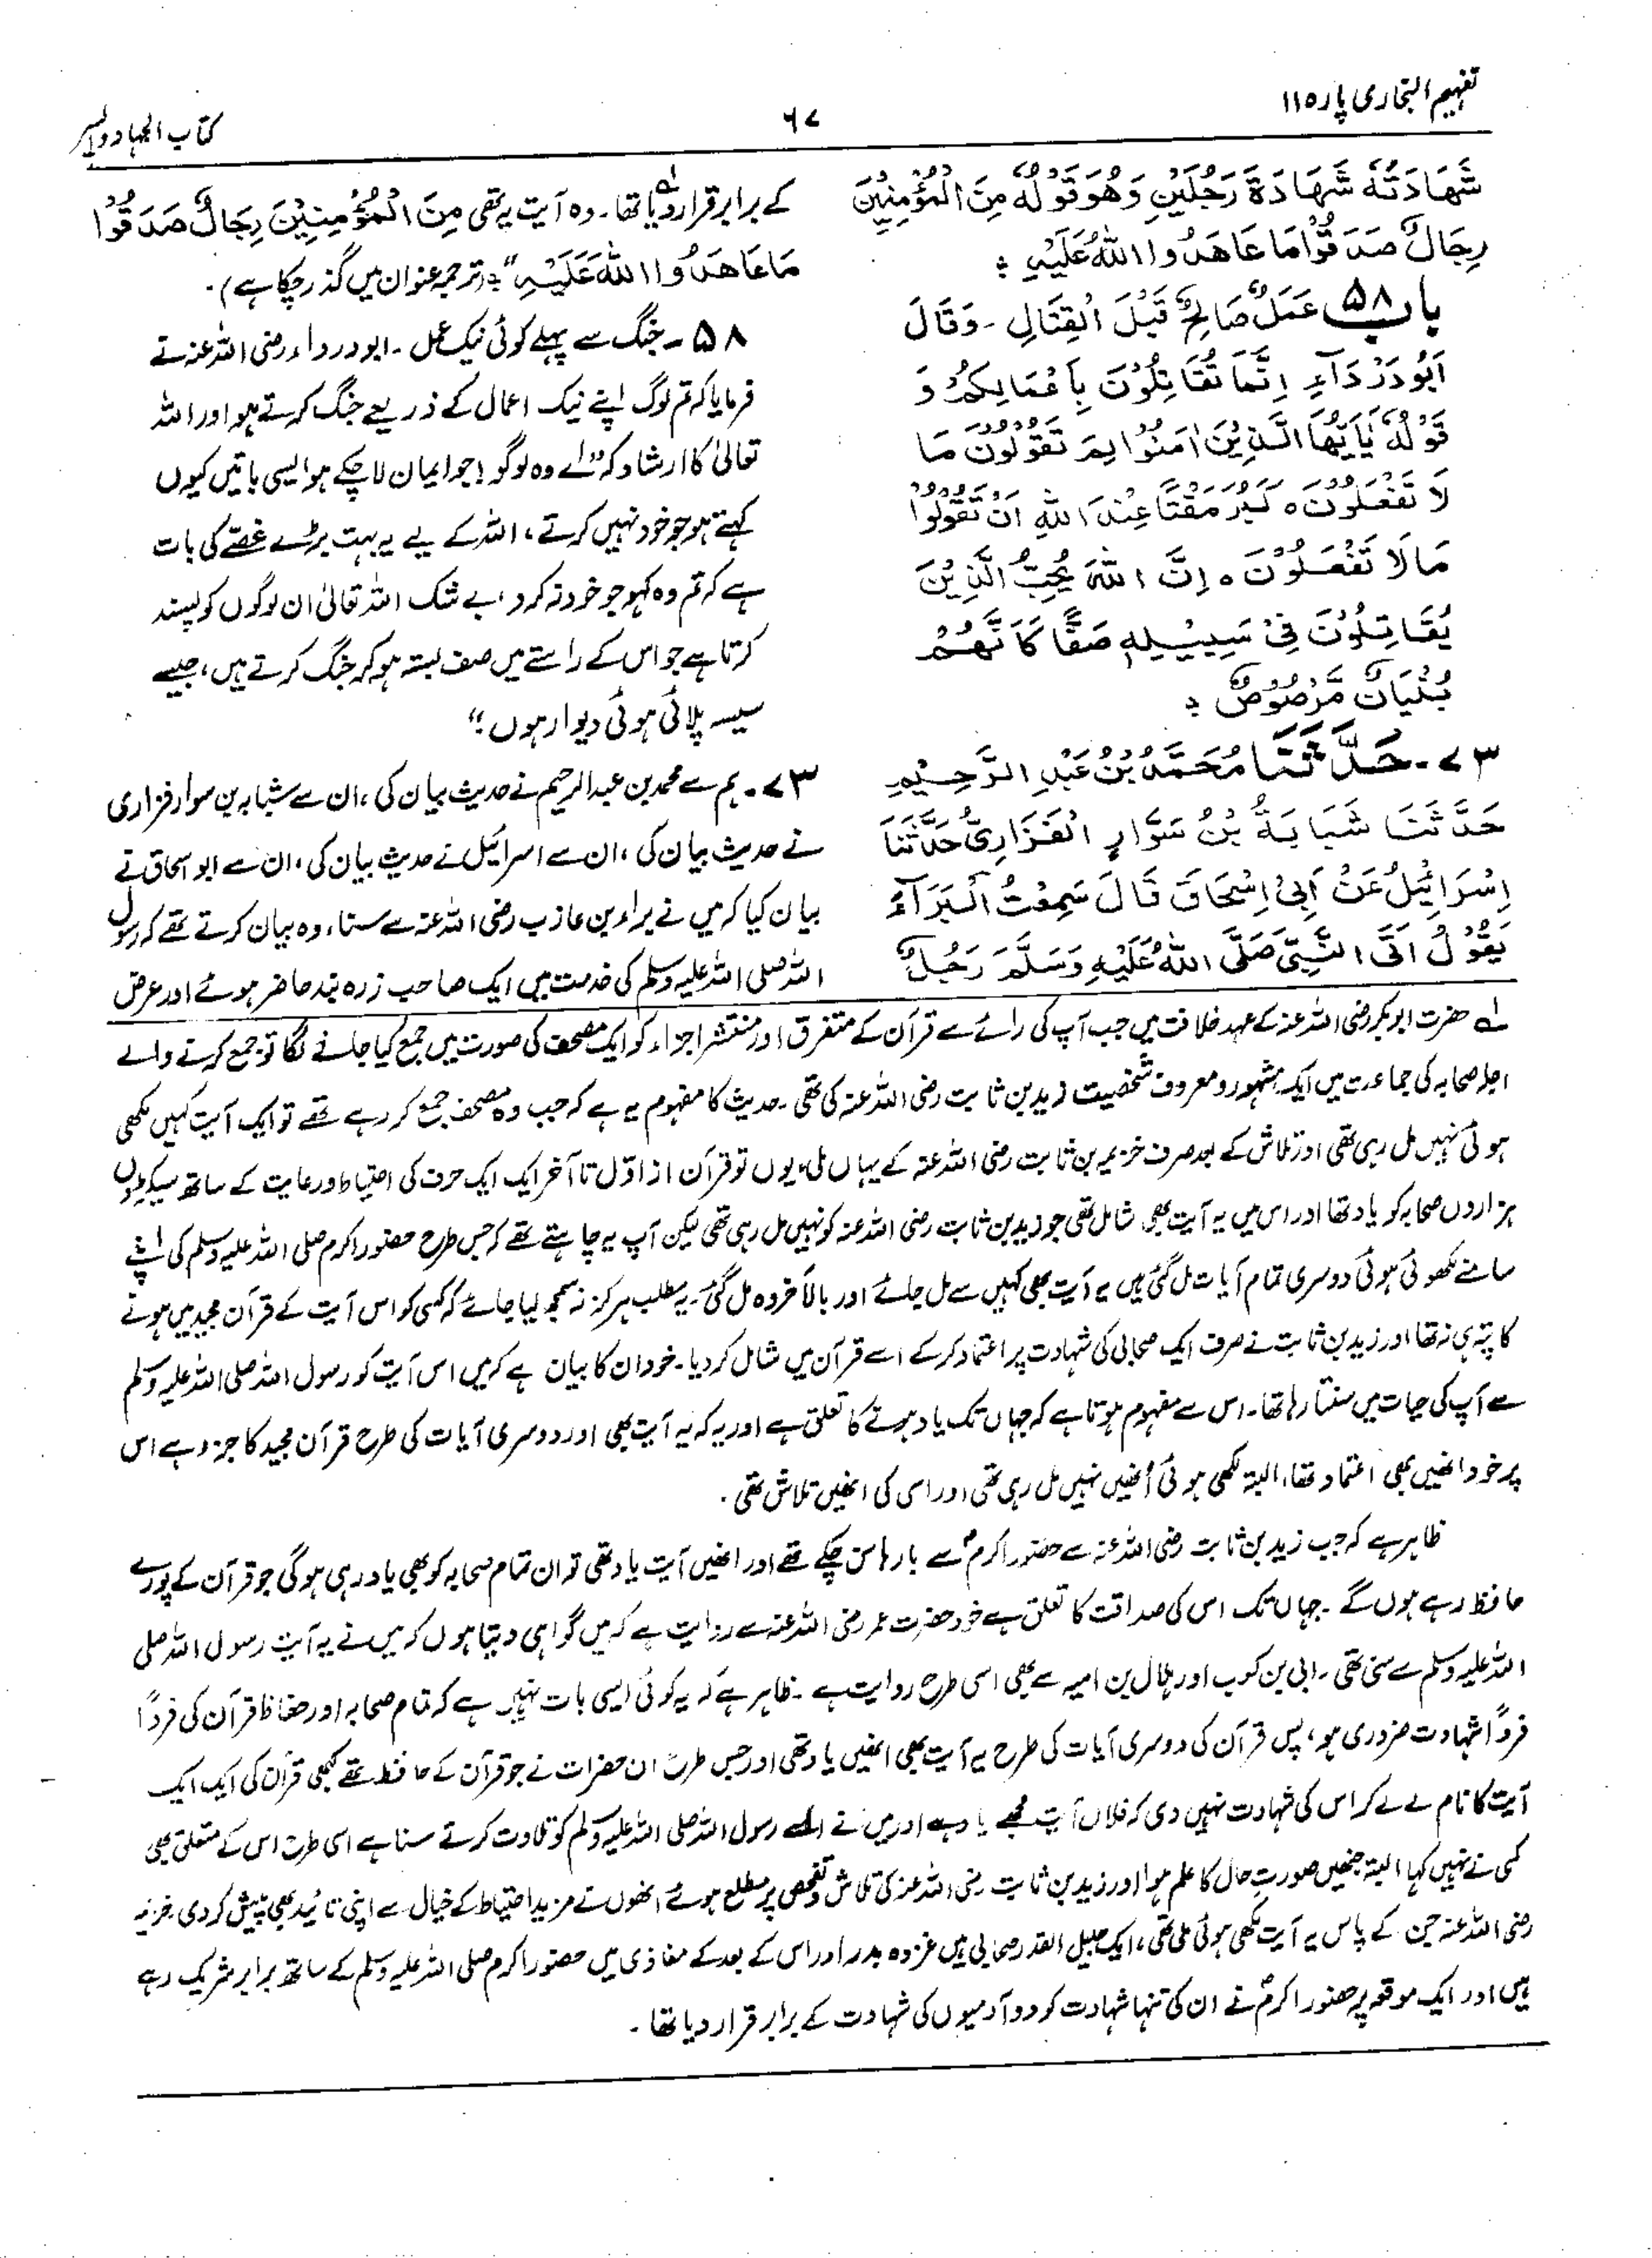 تفہیم البخاری پارہ ۱۱
۶۷
کتاب الجہاد والسیر
شَهَادَتَهٗ شَهَادَةَ رَجُلَيْنِ وَهُوَ قَوْلُهٗ مِنَ الْمُؤْمِنِيْنَ
رِجَالٌ صَدَقُوْا مَا عَاهَدُوا اللّٰهَ عَلَيْهِ ؞
باب ۵۸ عَمَلٌ صَالِحٌ قَبْلَ الْقِتَالِ ۔ وَقَالَ
اَبُوْ دَرْدَآءِ اِنَّمَا تُقَاتِلُوْنَ بِاَعْمَالِكُمْ وَ
قَوْلُهٗ يٰاَيُّهَا الَّذِيْنَ اٰمَنُوْا لِمَ تَقُوْلُوْنَ مَا
لَا تَفْعَلُوْنَ ہ كَبُرَ مَقْتًا عِنْدَ اللّٰهِ اَنْ تَقُوْلُوْا
مَا لَا تَفْعَلُوْنَ ہ اِنَّ اللّٰهَ يُحِبُّ الَّذِيْنَ
يُقَاتِلُوْنَ فِيْ سَبِيْلِهٖ صَفًّا كَاَنَّهُمْ
بُنْيَانٌ مَّرْصُوْصٌ ؞
۷۳ ۔ حَدَّثَنَا مُحَمَّدُ بْنُ عَبْدِ الرَّحِيْمِ
حَدَّثَنَا شَبَابَةُ بْنُ سَوَّارٍ الْفَزَارِيُّ حَدَّثَنَا
اِسْرَائِيْلُ عَنْ اَبِيْ اِسْحَاقَ قَالَ سَمِعْتُ الْبَرَآءَ
يَقُوْلُ اَتَى النَّبِيَّ صَلَّى اللّٰهُ عَلَيْهِ وَسَلَّمَ رَجُلٌ
کے برابر قرار دیا تھا ۔ وہ آیت یہ تھی مِنَ الْمُؤْمِنِيْنَ رِجَالٌ صَدَقُوْا
مَا عَاهَدُوا اللّٰهَ عَلَيْهِ ”؞ (ترجمہ عنوان میں گذر چکا ہے) ۔
۵۸ ۔ جنگ سے پہلے کوئی نیک عمل ۔ ابو درداء رضی اللہ عنہ نے
فرمایا کہ تم لوگ اپنے نیک اعمال کے ذریعے جنگ کرتے ہو اور اللہ
تعالیٰ کا ارشاد کہ ”اے وہ لوگو! جو ایمان لا چکے ہو ایسی باتیں کیوں
کہتے ہو جو خود نہیں کرتے ، اللہ کے لیے یہ بہت بڑے غصے کی بات
ہے کہ تم وہ کہو جو خود نہ کرو ، بے شک اللہ تعالیٰ ان لوگوں کو پسند
کرتا ہے جو اس کے راستے میں صف بستہ ہو کر جنگ کرتے ہیں ، جیسے
سیسہ پلائی ہوئی دیوار ہوں “
۷۳ ۔ ہم سے محمد بن عبدالرحیم نے حدیث بیان کی ، ان سے شبابہ بن سوار فزاری
نے حدیث بیان کی ، ان سے اسرائیل نے حدیث بیان کی ، ان سے ابو اسحاق نے
بیان کیا کہ میں نے براء بن عازب رضی اللہ عنہ سے سنا ، وہ بیان کرتے تھے کہ رسول
اللہ صلی اللہ علیہ وسلم کی خدمت میں ایک صاحب زرہ بند حاضر ہوئے اور عرض
لہ حضرت ابوبکر رضی اللہ عنہ کے عہد خلافت میں جب آپ کی رائے سے قرآن کے متفرق اور منتشر اجزاء کو ایک مصحف کی صورت میں جمع کیا جانے لگا تو جمع کرنے والے
اجلہ صحابہ کی جماعت میں ایک مشہور و معروف شخصیت زید بن ثابت رضی اللہ عنہ کی تھی ۔ حدیث کا مفہوم یہ ہے کہ جب وہ مصحف جمع کر رہے تھے تو ایک آیت کہیں لکھی
ہوئی نہیں مل رہی تھی اور تلاش کے بعد صرف خزیمہ بن ثابت رضی اللہ عنہ کے یہاں ملی ۔ یوں تو قرآن از اوّل تا آخر ایک ایک حرف کی احتیاط و رعایت کے ساتھ سیکڑوں
ہزاروں صحابہ کو یاد تھا اور اس میں یہ آیت بھی شامل تھی جو زید بن ثابت رضی اللہ عنہ کو نہیں مل رہی تھی لیکن آپ یہ چاہتے تھے کہ جس طرح حضور اکرم صلی اللہ علیہ وسلم کی اپنے
سامنے لکھوئی ہوئی دوسری تمام آیات مل گئی ہیں یہ آیت بھی کہیں سے مل جائے اور بالآخر وہ مل گئی ۔ یہ مطلب ہرگز نہ سمجھ لیا جائے کہ کسی کو اس آیت کے قرآن مجید میں ہونے
کا پتہ ہی نہ تھا اور زید بن ثابت نے صرف ایک صحابی کی شہادت پر اعتماد کر کے اسے قرآن میں شامل کر دیا ۔ خود ان کا بیان ہے کہ میں اس آیت کو رسول اللہ صلی اللہ علیہ وسلم
سے آپ کی حیات میں سنتا رہا تھا ۔ اس سے مفہوم ہوتا ہے کہ جہاں تک یاد ہونے کا تعلق ہے اور یہ کہ یہ آیت بھی اور دوسری آیات کی طرح قرآن مجید کا جزو ہے اس
پر خود انھیں بھی اعتماد تھا ، البتہ لکھی ہوئی اُنھیں نہیں مل رہی تھی اور اسی کی انھیں تلاش تھی ۔
ظاہر ہے کہ جب زید بن ثابت رضی اللہ عنہ سے حضور اکرمؐ سے بارہا سن چکے تھے اور انھیں آیت یاد تھی تو ان تمام صحابہ کو بھی یاد رہی ہوگی جو قرآن کے پورے
حافظ رہے ہوں گے ۔ جہاں تک اس کی صداقت کا تعلق ہے خود حضرت عمر رضی اللہ عنہ سے روایت ہے کہ میں گواہی دیتا ہوں کہ میں نے یہ آیت رسول اللہ صلی
اللہ علیہ وسلم سے سنی تھی ۔ ابی بن کعب اور ہلال بن امیہ سے بھی اسی طرح روایت ہے ۔ ظاہر ہے کہ یہ کوئی ایسی بات نہیں ہے کہ تمام صحابہ اور حفاظ قرآن کی فرداً
فرداً شہادت ضروری ہو ، پس قرآن کی دوسری آیات کی طرح یہ آیت بھی انھیں یاد تھی اور جس طرح ان حضرات نے جو قرآن کے حافظ تھے کبھی قرآن کی ایک ایک
آیت کا نام لے لے کر اس کی شہادت نہیں دی کہ فلاں آیت مجھے یاد ہے اور میں نے اسے رسول اللہ صلی اللہ علیہ وسلم کو تلاوت کرتے سنا ہے اسی طرح اس کے متعلق بھی
کسی نے نہیں کہا البتہ جنھیں صورتِ حال کا علم ہوا اور زید بن ثابت رضی اللہ عنہ کی تلاش و تفحص پر مطلع ہوئے انھوں نے مزید احتیاط کے خیال سے اپنی تائید بھی پیش کر دی ۔ خزیمہ
رضی اللہ عنہ جن کے پاس یہ آیت لکھی ہوئی ملی تھی ، ایک جلیل القدر صحابی ہیں غزوہ بدر اور اس کے بعد کے مغازی میں حضور اکرم صلی اللہ علیہ وسلم کے ساتھ برابر شریک رہے
ہیں اور ایک موقعہ پر حضور اکرمؐ نے ان کی تنہا شہادت کو دو آدمیوں کی شہادت کے برابر قرار دیا تھا ۔